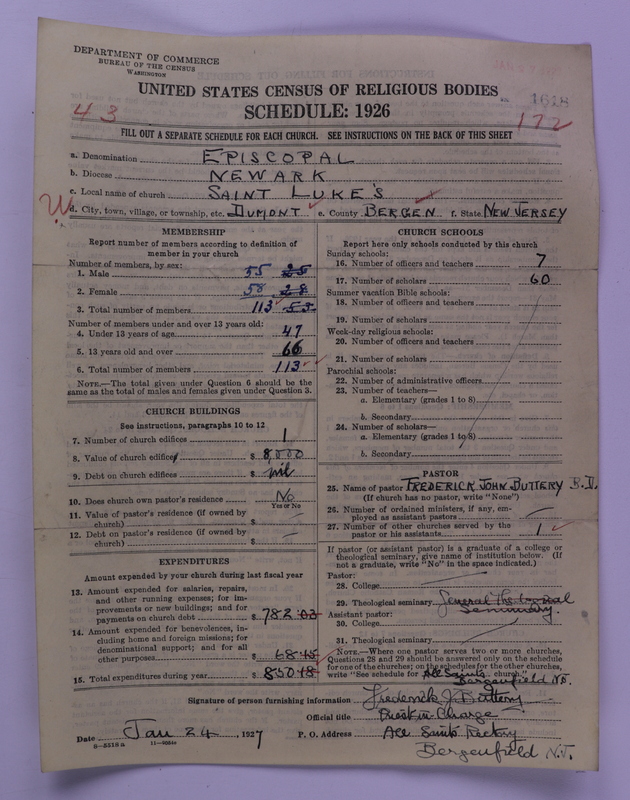 DEPARTMENT OF COMMERCE
BUREAU OF THE CENSUS
WASHINGTON
UNITED STATES CENSUS OF RELIGIOUS BODIES
SCHEDULE: 1926
43
1618
172
FILL OUT A SEPARATE SCHEDULE FOR EACH CHURCH. SEE INSTRUCTIONS ON THE BACK OF THIS SHEET
a. Denomination EPISCOPAL
b. Diocese NEWARK
c. Local name of church SAINT LUKE'S
d. City, town, village, or township, etc. DUMONT e. County BERGEN f. State NEW JERSEY
MEMBERSHIP
Report number of members according to definition of
member in your church
Number of members, by sex:
1. Male 55 25
2. Female 58 28
3. Total number of members 113 53
Number of members under and over 13 years old:
4. Under 13 years of age 47
5. 13 years old and over 66
6. Total number of members 113
NOTE.—The total given under Question 6 should be
same as the total of males and females given under Question 3.
CHURCH BUILDINGS
See instructions, paragraphs 10 to 12
7. Number of church edifices 1
8. Value of church edifices $ 8,000
9. Debt on church edifices $ nil
10. Does church own pastor's residence No
Yes or No
11. Value of pastor's residence (if owned by
church) $ —
12. Debt on pastor's residence (if owned by
church) $ —
EXPENDITURES
Amount expended by your church during last fiscal year
13. Amount expended for salaries, repairs,
and other running expenses; for im-
provements or new buildings; and for
payments on church debt $ 782.03
14. Amount expended for benevolences, in-
cluding home and foreign missions; for
denominational support; and for all
other purposes $ 68.15
15. Total expenditures during year $ 850.18
CHURCH SCHOOLS
Report here only schools conducted by this church
Sunday schools:
16. Number of officers and teachers 7
17. Number of scholars 60
Summer vacation Bible schools:
18. Number of officers and teachers
19. Number of scholars
Week-day religious schools:
20. Number of officers and teachers
21. Number of scholars
Parochial schools:
22. Number of administrative officers
23. Number of teachers—
a. Elementary (grades 1 to 8)
b. Secondary
24. Number of scholars—
a. Elementary (grades 1 to 8)
b. Secondary
PASTOR
25. Name of pastor FREDERICK JOHN BUTTERY B.D.
(If church has no pastor, write "None")
26. Number of ordained ministers, if any, em-
ployed as assistant pastors —
27. Number of other churches served by the
pastor or his assistants 1
If pastor (or assistant pastor) is a graduate of a college or
theological seminary, give name of institution below. (If
not a graduate, write "No" in the space indicated.)
Pastor:
28. College
29. Theological seminary General Theological
Seminary.
Assistant pastor:
30. College
31. Theological seminary
NOTE.—Where one pastor serves two or more churches,
Questions 28 and 29 should be answered only on the schedule
for one of the churches; on the schedules for the other churches,
write "See schedule for All Saints church."
Bergenfield NJ.
Signature of person furnishing information Frederick J. Buttery
Official title Priest in Charge
Date Jan 24, 1927 P. O. Address All Saints Rectory
Bergenfield N.J.